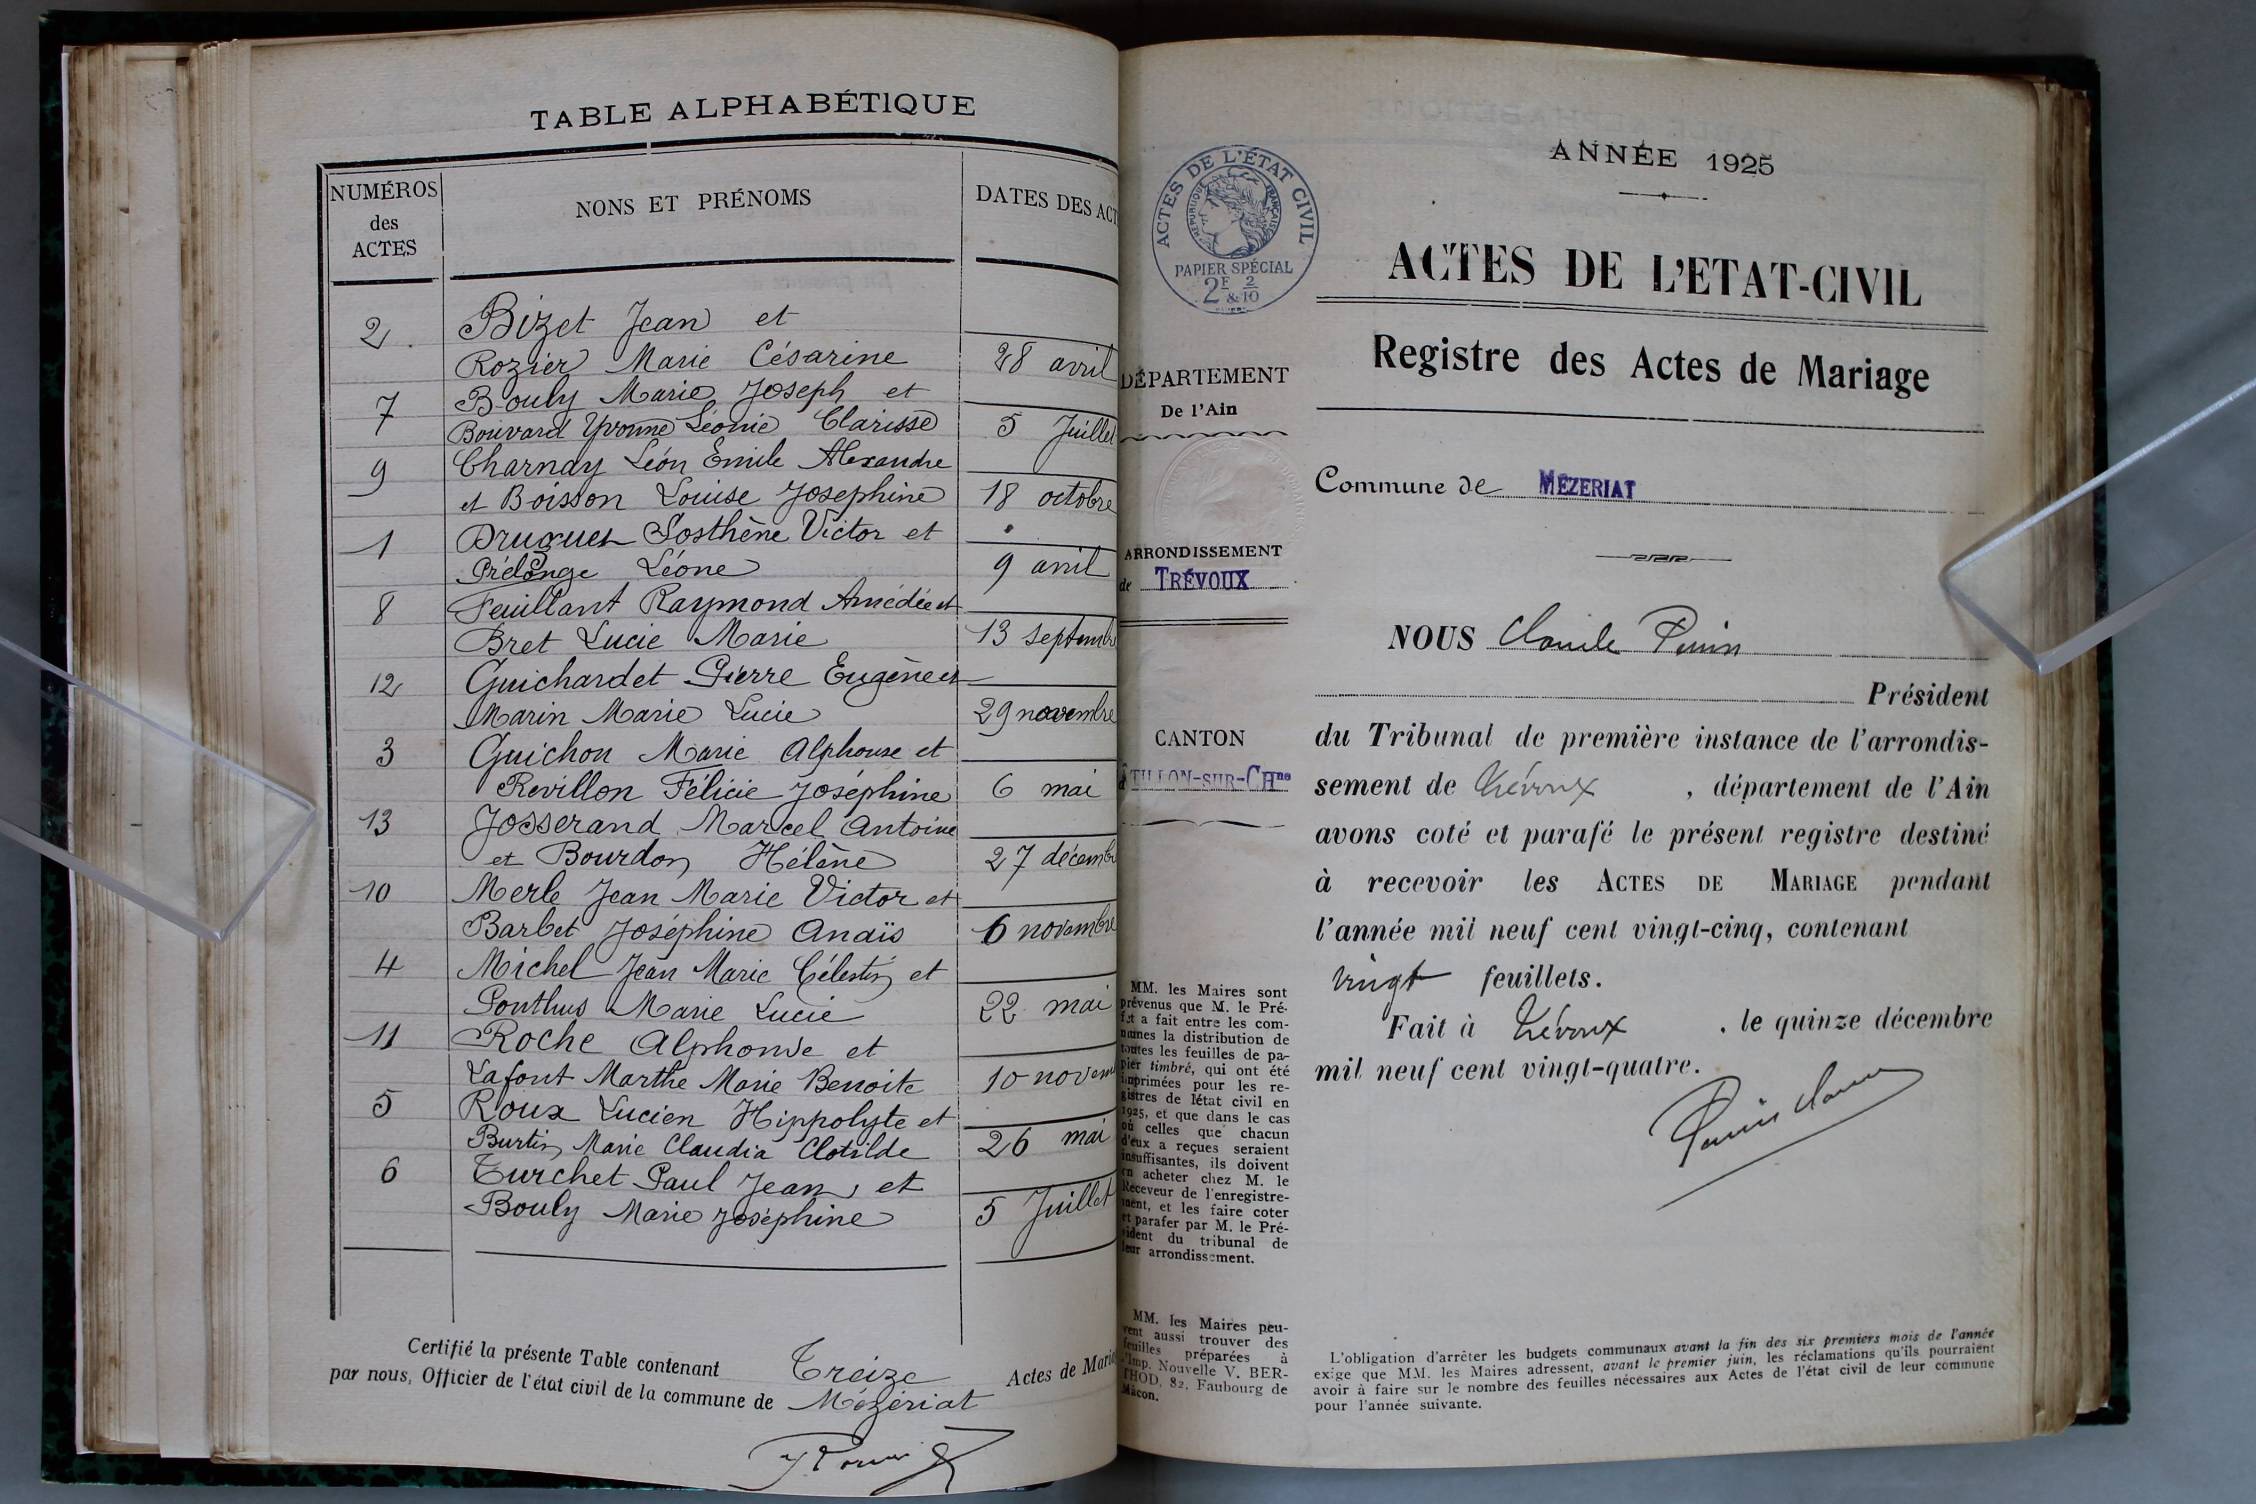 TABLE ALPHABÉTIQUE
NUMÉROS
des
ACTES
NONS ET PRÉNOMS
DATES DES ACT
2
Bizet Jean et
Rozier Marie Césarine
28 avril
7
Bouly Marie Joseph et
Bouvard Yvonne Léonie Clarisse
5 Juillet
9
Charnay Léon Emile Alexandre
et Boisson Louise Josephine
18 octobre
1
Druguet Sosthène Victor et
Prélonge Léone
9 avril
8
Feuillant Raymond Amédée et
Bret Lucie Marie
13 septembre
12
Guichardet Pierre Eugène et
Marin Marie Lucie
29 novembre
3
Guichon Marie Alphonse et
Revillon Félicie Joséphine
6 mai
13
Josserand Marcel Antoine
et Bourdon Hélène
27 décembre
10
Merle Jean Marie Victor et
Barbet Joséphine Anaïs
6 novembre
4
Michel Jean Marie Célestin et
Ponthus Marie Lucie
22 mai
11
Roche Alphonse et
Lafont Marthe Marie Benoite
10 novem
5
Roux Lucien Hippolyte et
Burtin Marie Claudia Clotilde
26 mai
6
Turchet Paul Jean et
Bouly Marie Joséphine
5 Juillet
Certifié la présente Table contenant Treize Actes de Maria
par nous, Officier de l'état civil de la commune de Mézériat
ACTES DE L'ÉTAT CIVIL
RÉPUBLIQUE FRANÇAISE
PAPIER SPÉCIAL
2F & 2/10
DÉPARTEMENT
De l'Ain
ARRONDISSEMENT
de TRÉVOUX
CANTON
TILLON-SUR-CHne
MM. les Maires sont
prévenus que M. le Pré-
fet a fait entre les com-
munes la distribution de
toutes les feuilles de pa-
pier timbré, qui ont été
imprimées pour les re-
gistres de létat civil en
1925, et que dans le cas
où celles que chacun
d'eux a reçues seraient
insuffisantes, ils doivent
en acheter chez M. le
Receveur de l'enregistre-
ment, et les faire coter
et parafer par M. le Pré-
sident du tribunal de
leur arrondissement.
MM. les Maires peu-
vent aussi trouver des
feuilles préparées à
l'Imp. Nouvelle V. BER-
THOD, 82, Faubourg de
Mâcon.
ANNÉE 1925
ACTES DE L'ETAT-CIVIL
Registre des Actes de Mariage
Commune de MÉZERIAT
NOUS Claude
Président
du Tribunal de première instance de l'arrondis-
sement de Trévoux , département de l'Ain
avons coté et parafé le présent registre destiné
à recevoir les ACTES DE MARIAGE pendant
l'année mil neuf cent vingt-cinq, contenant
vingt feuillets.
Fait à Trévoux , le quinze décembre
mil neuf cent vingt-quatre.
L'obligation d'arrêter les budgets communaux avant la fin des six premiers mois de l'année
exige que MM. les Maires adressent, avant le premier juin, les réclamations qu'ils pourraient
avoir à faire sur le nombre des feuilles nécessaires aux Actes de l'état civil de leur commune
pour l'année suivante.